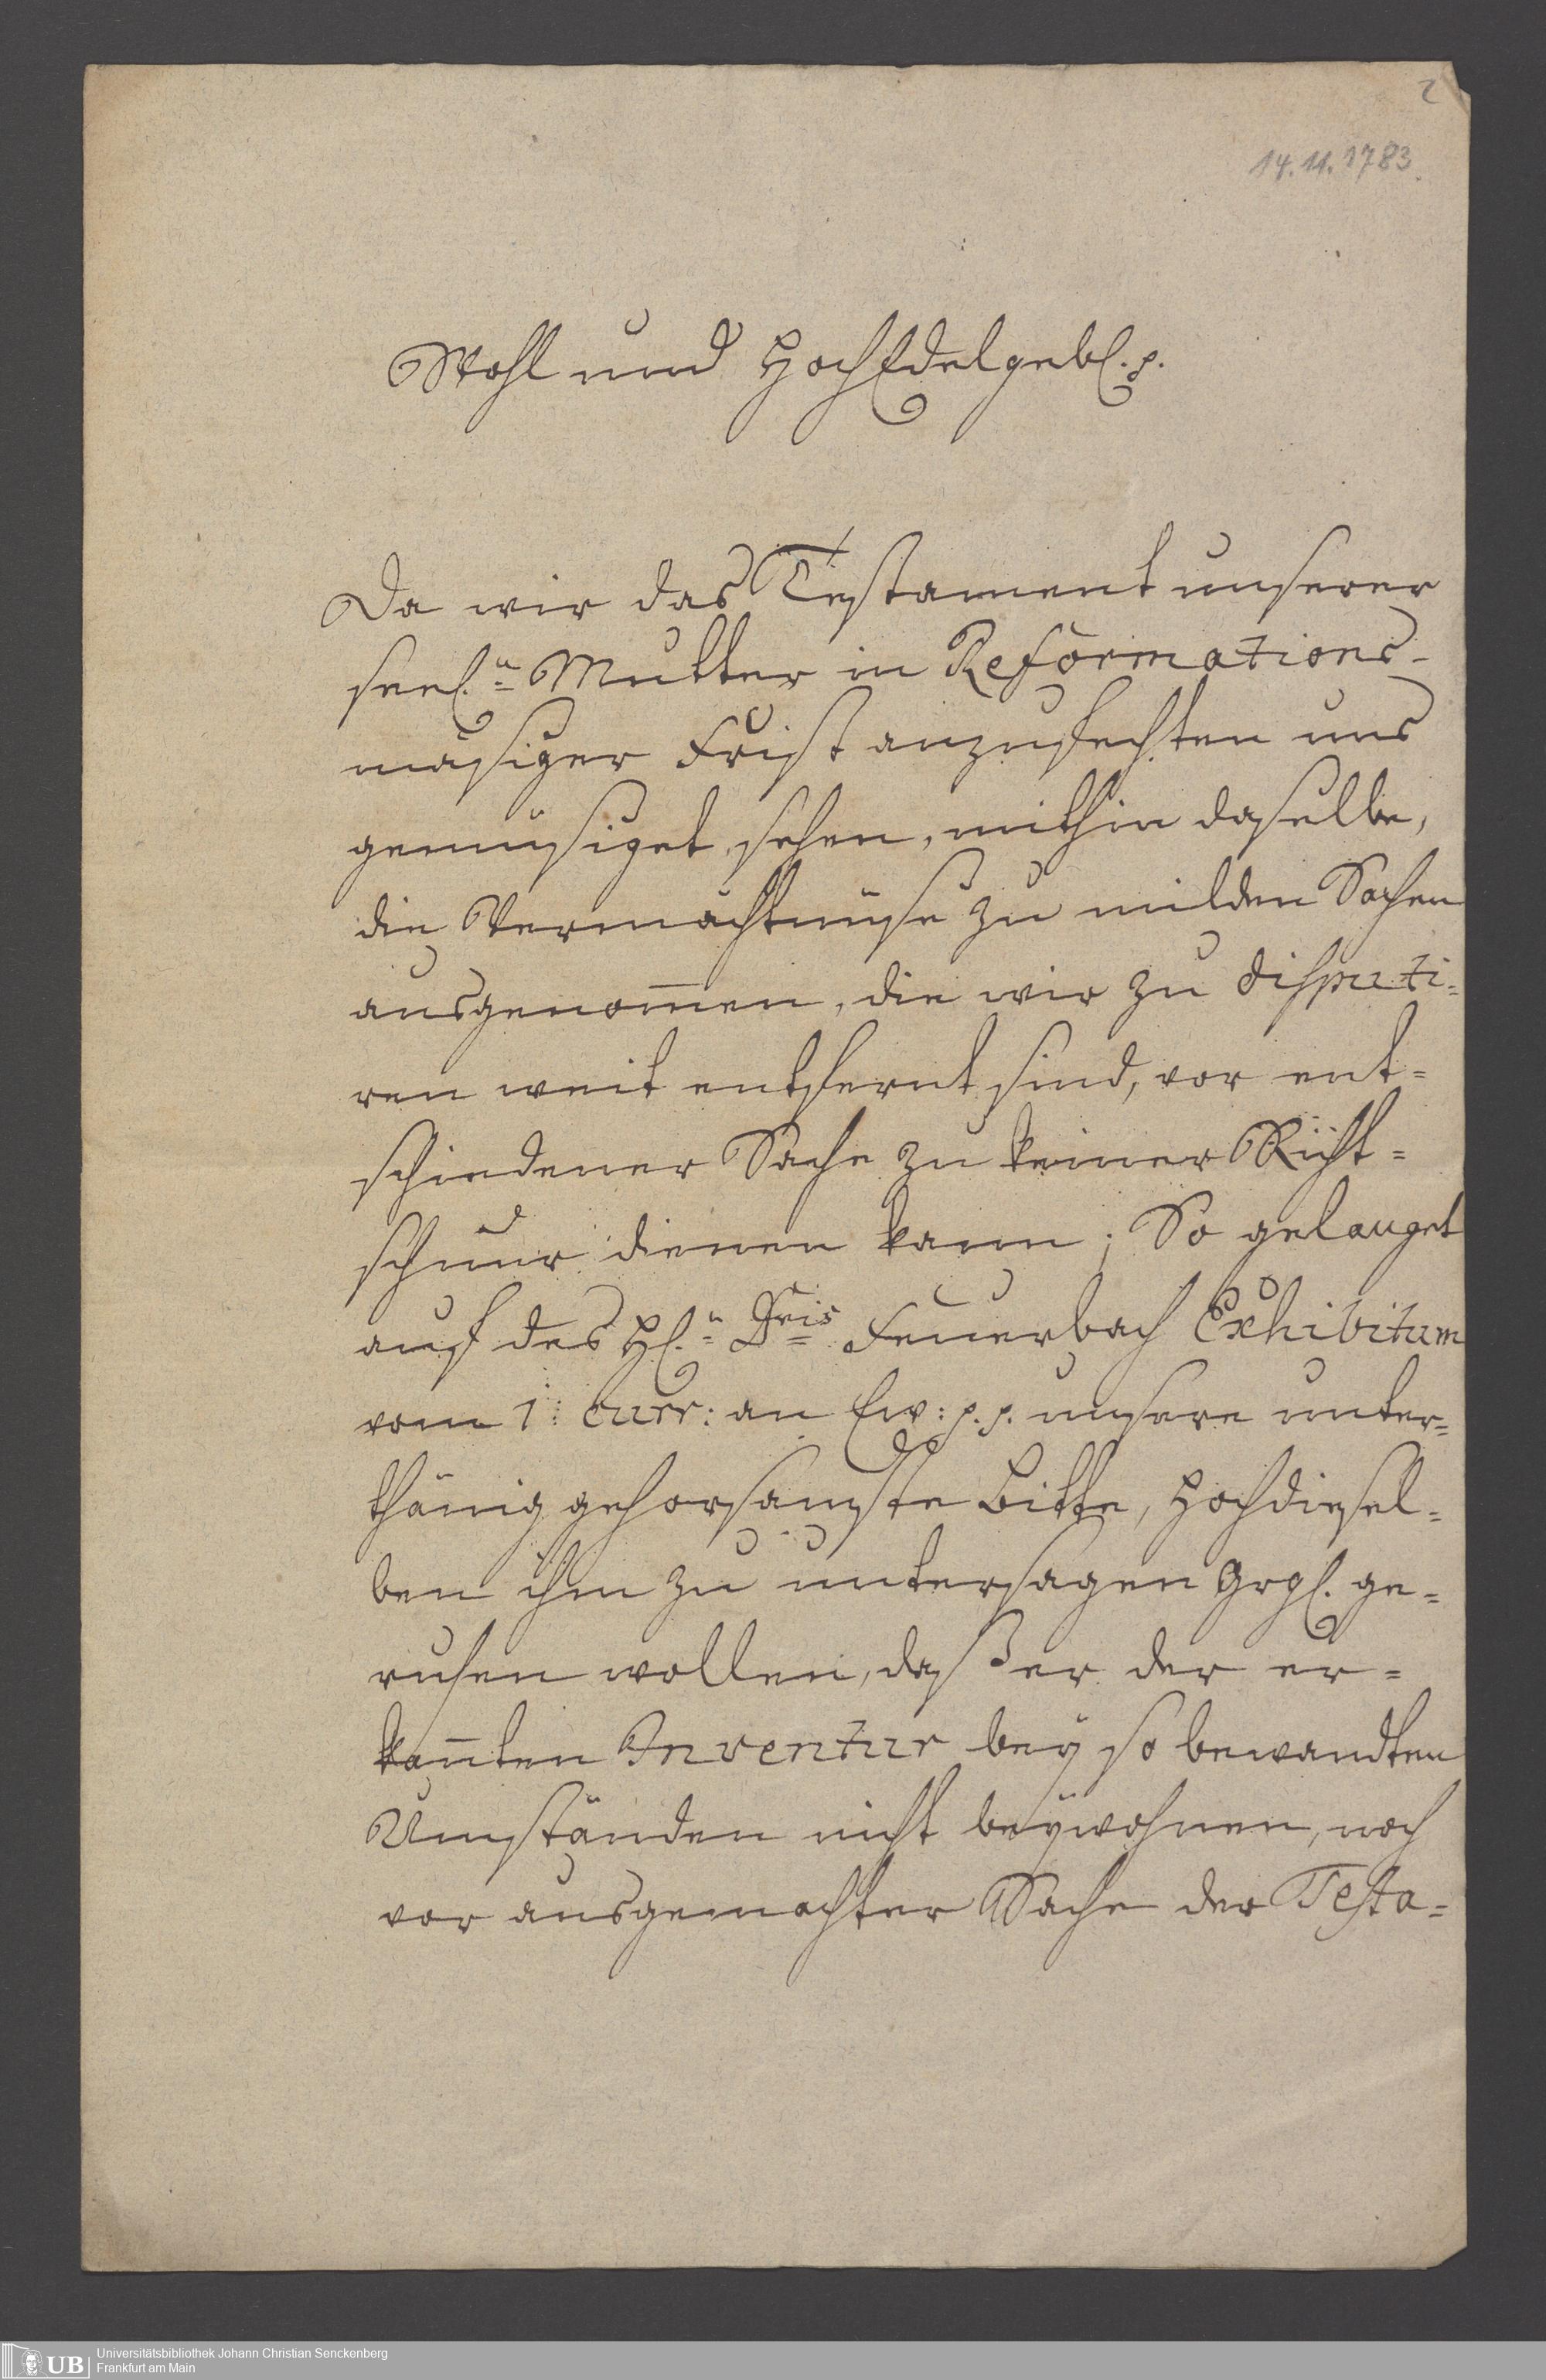 2
14.11.1783.
Wohl und HochEdelgebl. p.
Da wir das Testament unserer
seel.n Mutter in Reformations-
mäsiger Frist anzufechten uns
gemüsiget sehen, mithin daselbe,
die Vermächtnüse zu milden Sachen
ausgenom̄en, die wir zu disputi=
ren weit entfernt sind, vor ent=
schiedener Sache zu keiner Richt=
schnur dienen kann; So gelanget
auf des H.n Dris Feuerbach Exhibitum
vom 1: curr: an Ew: p. p. unsere unter=
thänig gehorsamste Bitte, Hochdiesel=
ben ihm zu untersagen Grgl. ge=
ruhen wollen, daß er der er=
kan̄ten Inventur bey so bewandten
Umständen nicht beÿwohnen, noch
vor ausgemachter Sache der Testa=
UB
Universitätsbibliothek Johann Christian Senckenberg
Frankfurt am Main